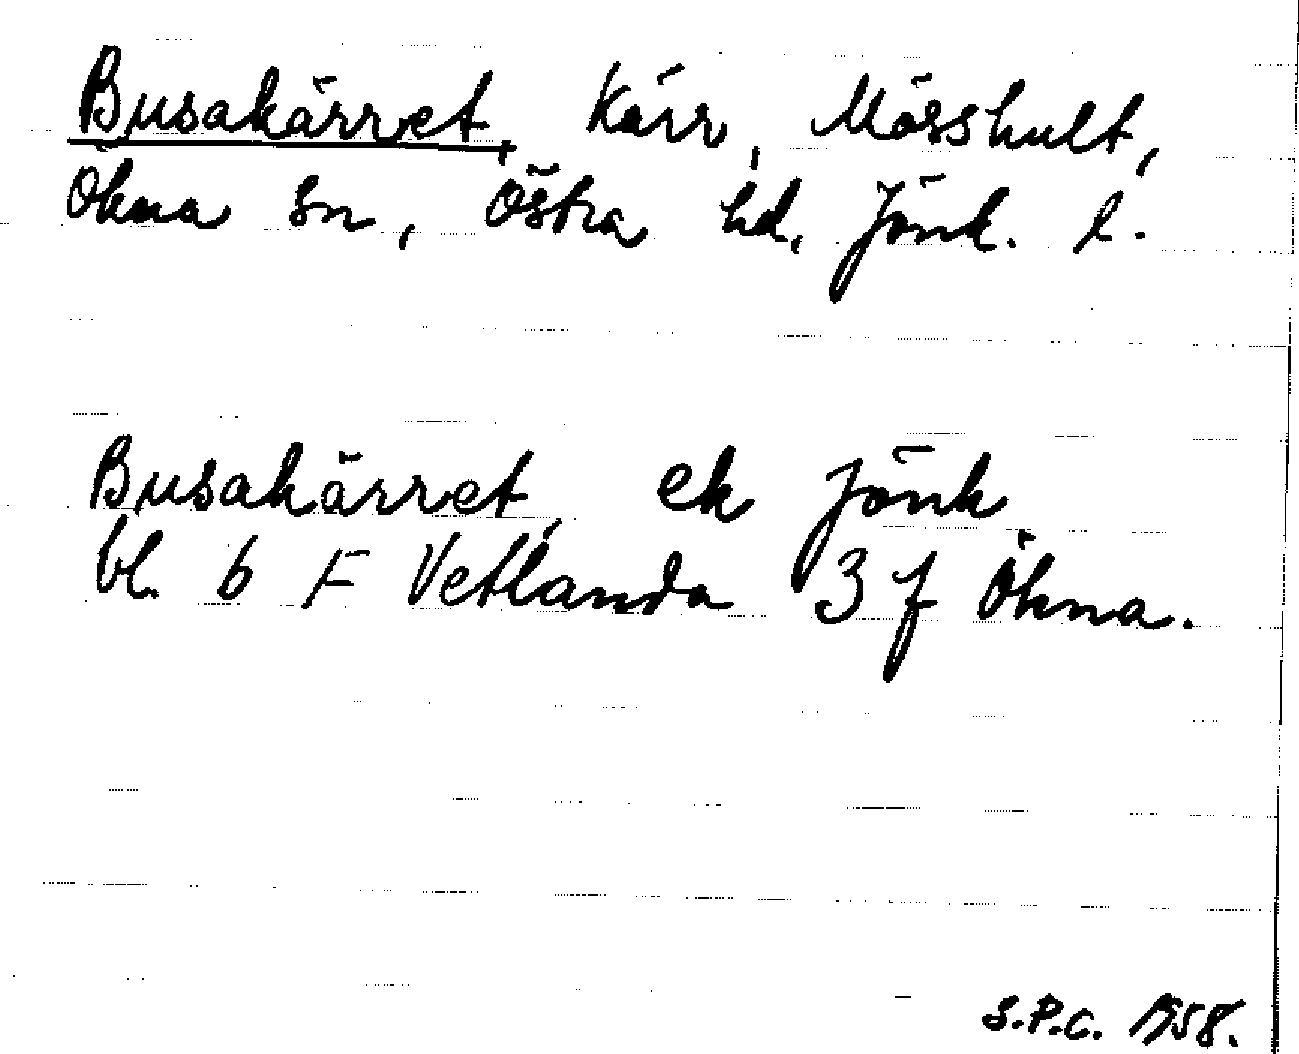 Busakärret, Kärr, Mösshult,
Ökna sn, Östra hd, Jönk. l.
Busakärret, ek Jönk
bl. 6 F Vetlanda 3 f Ökna.
S.P.C. 1958.